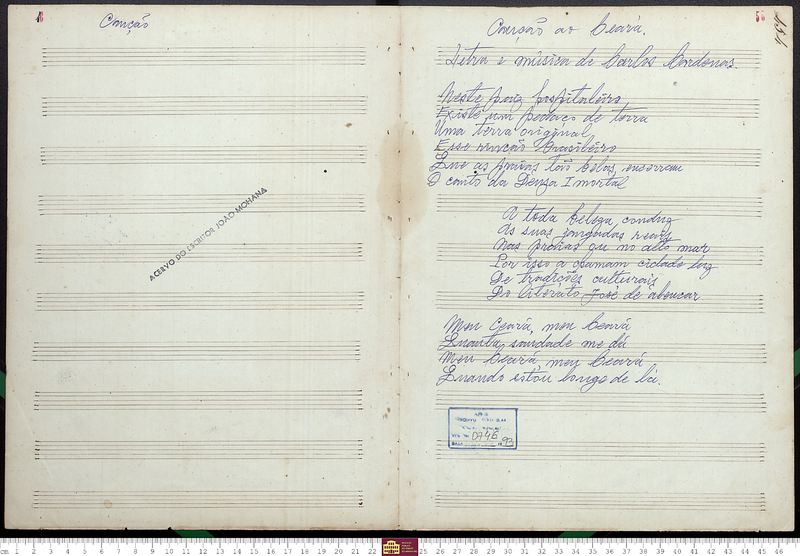 Canção
ACERVO DO ESCRITOR JOÃO MOHANA
Canção ao Ceará.
Letra e música de Carlos Cardenas.
Neste paiz hospitaleiro
Existe um pedaço de terra
Uma terra original
Esse rincão Brasileiro
Que as praias tão belas, encerram
O canto da Imortal
A toda beleza condiz
As suas jangadas reais
Nas praias ou no alto mar
Por isso a chamam cidade luz
De tradições culturais
Do literato José de Alencar
Meu Ceará, meu Ceará
Quanta saudade me dá
Meu Ceará, meu Ceará
Quando estou longe de lá.
0746 93